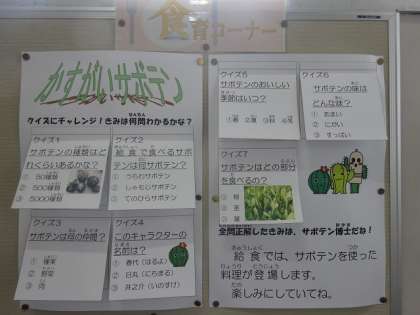 食育コーナー
かすがいサボテン
クイズにチャレンジ！きみは何問わかるかな？
クイズ１
サボテンの種類はど
れくらいあるかな？
① 50種類
② 500種類
③ 5000種類
クイズ２
給食で食べるサボ
テンは何サボテン？
① うちわサボテン
② しゃもじサボテン
③ てのひらサボテン
クイズ３
サボテンは何の仲間？
① 種葉
② 野菜
③ 肉
クイズ４
このキャラクターの
名前は？
① 春代（はるよ）
② 日丸（にちまる）
③ 井之介（いのすけ）
クイズ５
サボテンのおいしい
季節はいつ？
①春 ②夏 ③秋 ④冬
クイズ６
サボテンの味は
どんな味？
① あまい
② にがい
③ すっぱい
クイズ７
サボテンはどの部分
を食べるの？
① 根
② 茎
③ 葉
全問正解したきみは、サボテン博士だね！
給食では、サボテンを使った
料理が登場します。
楽しみにしていてね。